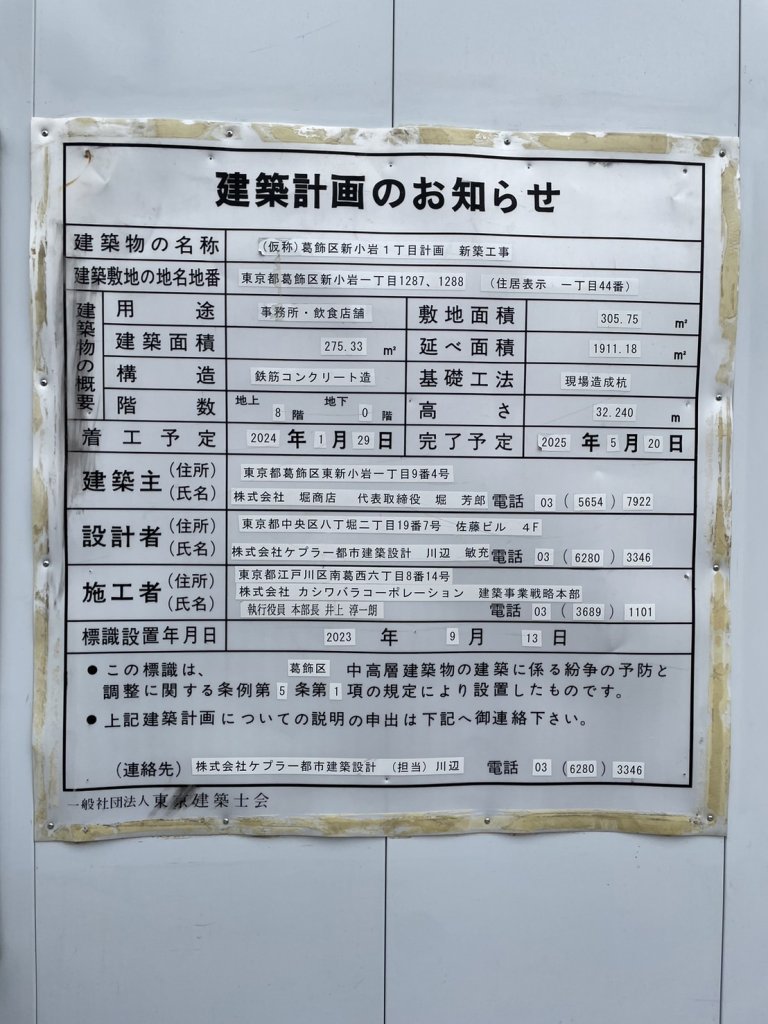 建築計画のお知らせ
建築物の名称 (仮称)葛飾区新小岩1丁目計画 新築工事
建築敷地の地名地番 東京都葛飾区新小岩一丁目1287、1288 (住居表示 一丁目44番)
建築物の概要
用途 事務所・飲食店舗 敷地面積 305.75 m²
建築面積 275.33 m² 延べ面積 1911.18 m²
構造 鉄筋コンクリート造 基礎工法 現場造成杭
階数 地上 8 階 地下 0 階 高さ 32.240 m
着工予定 2024 年 1 月 29 日 完了予定 2025 年 5 月 20 日
建築主 (住所) 東京都葛飾区東新小岩一丁目9番4号
(氏名) 株式会社 堀商店 代表取締役 堀 芳郎 電話 03 (5654) 7922
設計者 (住所) 東京都中央区八丁堀二丁目19番7号 佐藤ビル 4F
(氏名) 株式会社ケプラー都市建築設計 川辺 敏充 電話 03 (6280) 3346
施工者 (住所) 東京都江戸川区南葛西六丁目8番14号
(氏名) 株式会社 カシワバラコーポレーション 建築事業戦略本部
執行役員 本部長 井上 淳一朗 電話 03 (3689) 1101
標識設置年月日 2023 年 9 月 13 日
●この標識は、 葛飾区 中高層建築物の建築に係る紛争の予防と
調整に関する条例第 5 条第 1 項の規定により設置したものです。
●上記建築計画についての説明の申出は下記へ御連絡下さい。
(連絡先) 株式会社ケプラー都市建築設計 (担当)川辺 電話 03 (6280) 3346
一般社団法人 東京建築士会